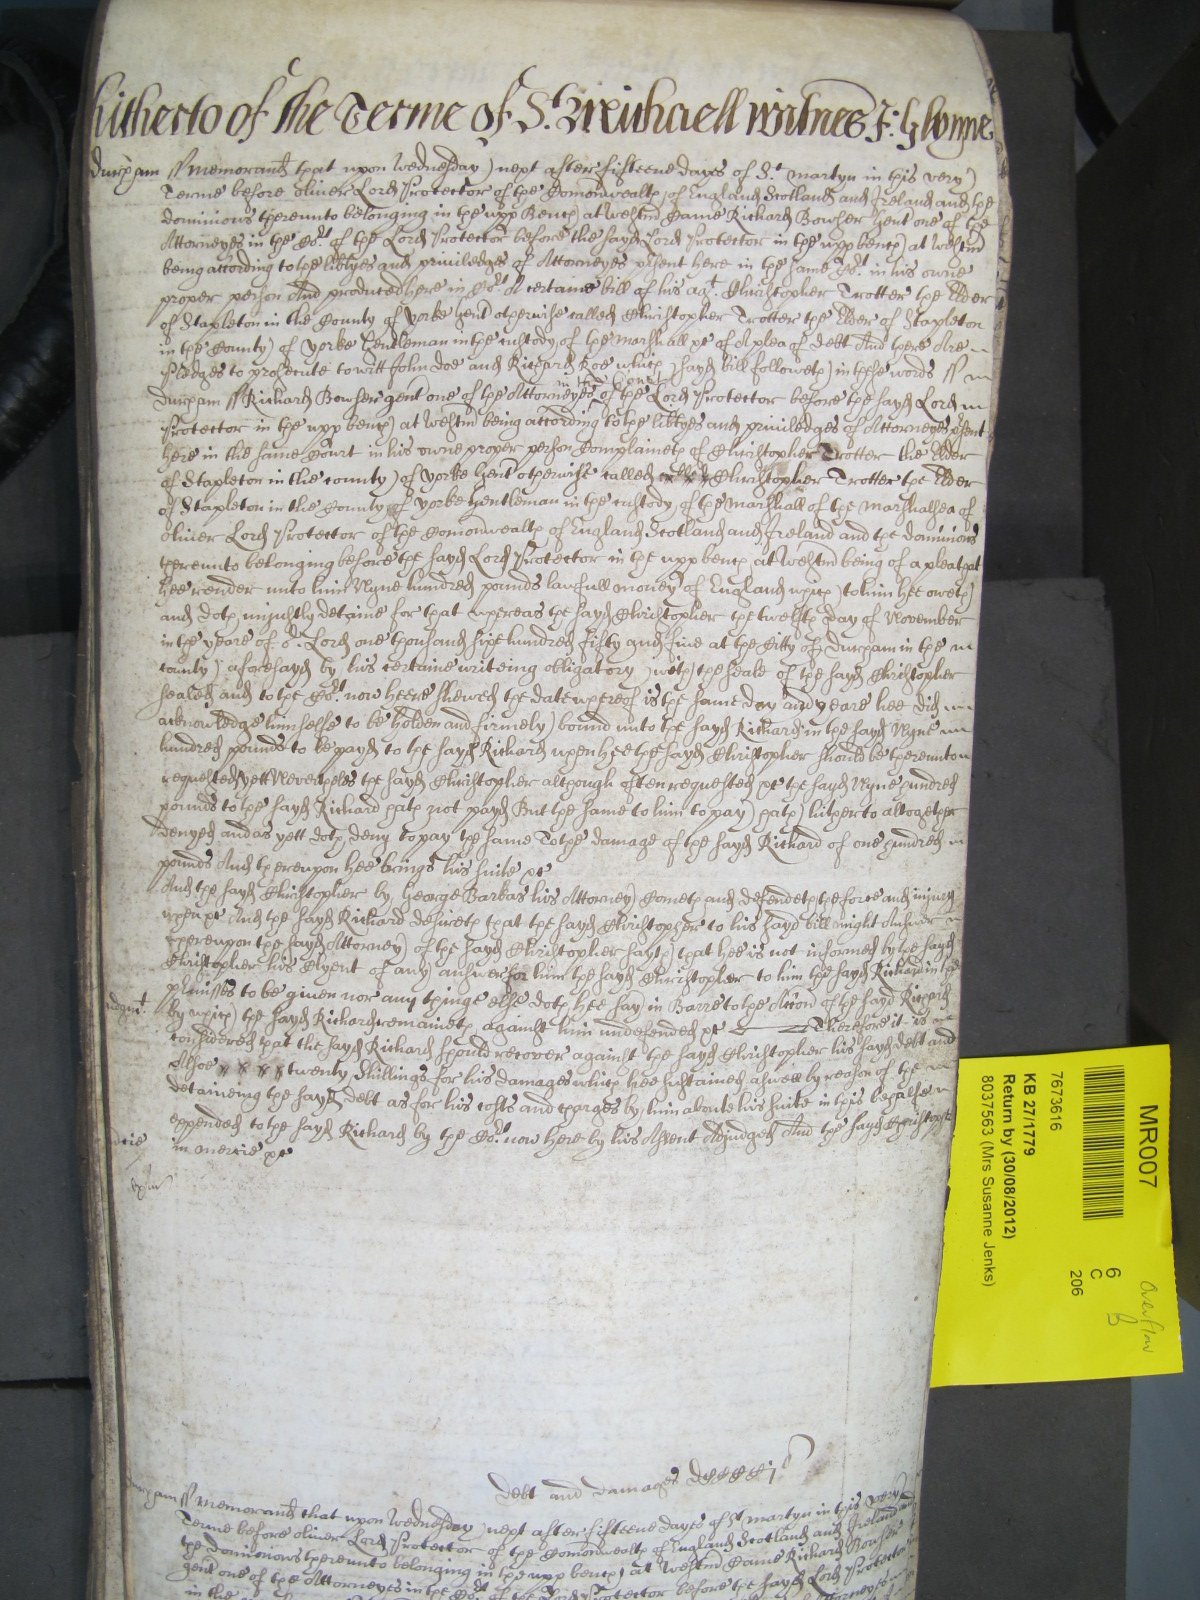 hitherto of the Terme of St. Michaell Witnes J: Glynne
Durham ss Memorand that upon Wednesday next after fifteene dayes of St. Martyn in this very
Terme before Oliver Lord Protector of the Comonwealth of England Scotland and Ireland and the
dominions thereunto belonging in the upp Bench at Westm Came Richard Bowser Gent one of the
Attorneyes in the Cot. of the Lord Protector before the sayd Lord Protector in the upp bench at Westm
being according to the libtyes and priviledges of Attorneyes psent here in the same Cot. in his owne
proper person And produced here in Cot. A certaine bill of his agt. Christopher Trotter the Elder
of Stapleton in the County of Yorke Gent otherwise called Christopher Trotter the Elder of Stapleton
in the County of Yorke Gentleman in the custody of the Marshall &c of A plea of debt And there Are
Pledges to prosecute to witt John Doe and Richard Roe which sayd bill followeth in these words ss
Durham ss Richard Bowser gent one of the Attorneyes in the Court of the Lord Protector before the sayd Lord
Protector in the upp bench at Westm being according to the libtyes and priviledges of Attorneyes psent
here in the same Court in his owne proper person Complaineth of Christopher Trotter the Elder
of Stapleton in the county of Yorke Gent otherwise called Christopher Trotter the Elder
of Stapleton in the County of Yorke Gentleman in the custody of the Marshall of the Marshalsea of
Oliver Lord Protector of the Comonwealth of England Scotland and Ireland and the dominions
thereunto belonging before the sayd Lord Protector in the upp bench at Westm being of a plea that
hee render unto him Nyne hundred pounds lawfull money of England which to him hee oweth
and doth unjustly detaine for that whereas the sayd Christopher the twelfth day of November
in the yeare of or. Lord one thousand six hundred fifty and five at the Citty of Durham in the
county aforesayd by his certaine writeing obligatory with the seale of the sayd Christopher
sealed and to the Cot. now heere shewed the date whereof is the same day and yeare hee did
acknowledge himselfe to be holden and firmely bound unto the sayd Richard in the sayd Nyne
hundred pounds to be payd to the sayd Richard when hee the sayd Christopher should be thereunto
requested yett Neverthelès the sayd Christopher although often requested &c the sayd Nyne hundred
pounds to the sayd Richard hath not payd But the same to him to pay hath hitherto altogether
denyed and as yett doth deny to pay the same To the damage of the sayd Richard of one hundred
pounds And thereupon hee brings his suite &c
And the sayd Christopher by George Barkas his Attorney Cometh and defendeth the force and injury
when &c And the sayd Richard desireth that the sayd Christopher to his sayd bill might Answer
thereupon the sayd Attorney of the sayd Christopher sayth that hee is not informed by the sayd
Christopher his Clyent of any answer for him the sayd Christopher to him the sayd Richard in the
pmisses to be given nor any thinge else doth hee say in Barre to the Accon of the sayd Richard
Judgmt. by which the sayd Richard remaineth against him undefended &c Therefore it is
considered that the sayd Richard should recover against the sayd Christopher his sayd debt and
Alsoe twenty shillings for his damages which hee sustained aswell by reason of the
detaineing the sayd debt as for his costs and charges by him about his suite in this behalfe
expended to the sayd Richard by the Cot. now here by his Assent Adjudged And the sayd Christopher
mcie in mercie &c
debt and damages
Durham ss Memorand that upon Wednesday next after fifteene dayes of St Martyn in this very
Terme before Oliver Lord Protector of the Comonwealth of England Scotland and Ireland and
the dominions thereunto belonging in the upp bench at Westm Came Richard Bowser
gent one of the Attorneyes in the Cot. of the Lord Protector before the sayd Lord Protector
in the
MR007
7673616
KB 27/1779
Return by (30/08/2012)
8037563 (Mrs Susanne Jenks)
6
C
206
Overflow
B